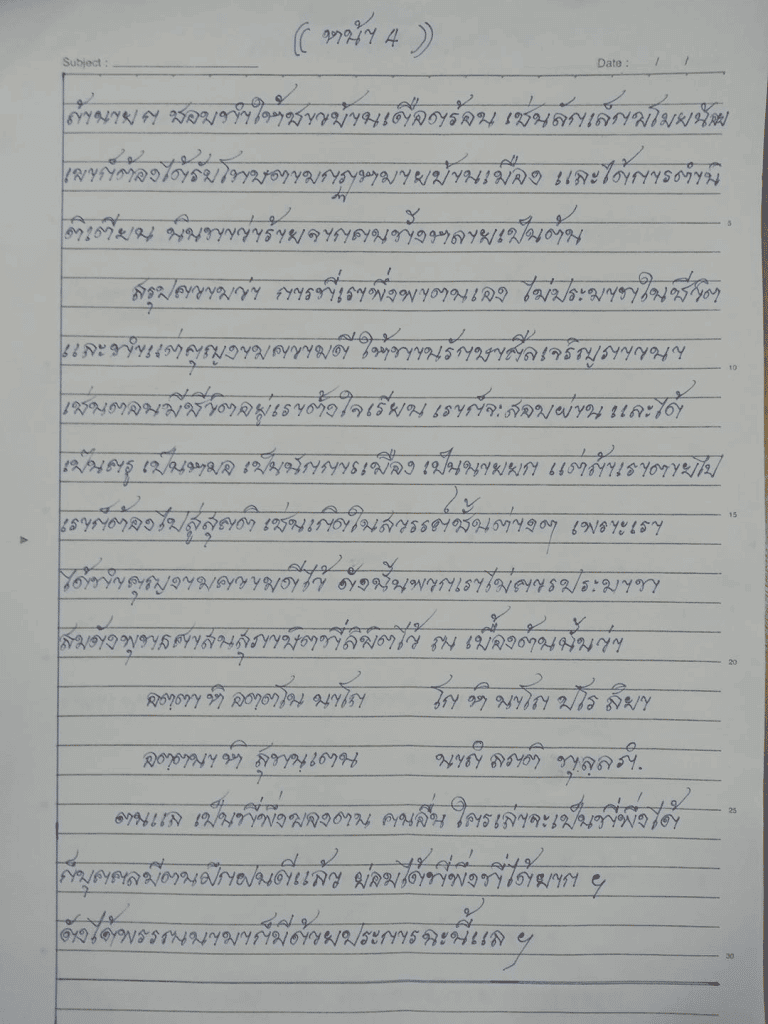 (( หน้า 4 ))
Subject :
Date : / /
ถ้านาย ก ชอบทำให้ชาวบ้านเดือดร้อน เช่นลักเล็กขโมยน้อย
เขาก็ต้องได้รับโทษตามกฎหมายบ้านเมือง และได้การตำหนิ
ติเตียน นินทาว่าร้ายจากคนทั้งหลายเป็นต้น
5
สรุปความว่า การที่เราพึ่งพาตนเอง ไม่ประมาทในชีวิต
และทำแต่คุณงามความดี ให้ทานรักษาศีลเจริญภาวนา
10
เช่นตอนมีชีวิตอยู่เราตั้งใจเรียน เราก็จะสอบผ่าน และได้
เป็นครู เป็นหมอ เป็นนักการเมือง เป็นนายยก แต่ถ้าเราตายไป
เราก็ต้องไปสู่สุคติ เช่นเกิดในสวรรค์ชั้นต่างๆ เพราะเรา
15
ได้ทำคุณงามความดีไว้ ดังนั้นพวกเราไม่ควรประมาท
สมดังพุทธศาสนสุภาษิตที่ลิขิตไว้ ณ เบื้องต้นนั้นว่า
20
อตฺตา หิ อตฺตโน นาโถ โก หิ นาโถ ปโร สิยา
อตฺตนา หิ สุทนฺเตน นาถํ ลภติ ทุลฺลภํ.
ตนแล เป็นที่พึ่งของตน คนอื่น ใครเล่าจะเป็นที่พึ่งได้
25
ก็บุคคลมีตนฝึกฝนดีแล้ว ย่อมได้ที่พึ่งที่ได้ยาก ฯ
ดังได้พรรณนามาก็มีด้วยประการฉะนี้แล ฯ
30